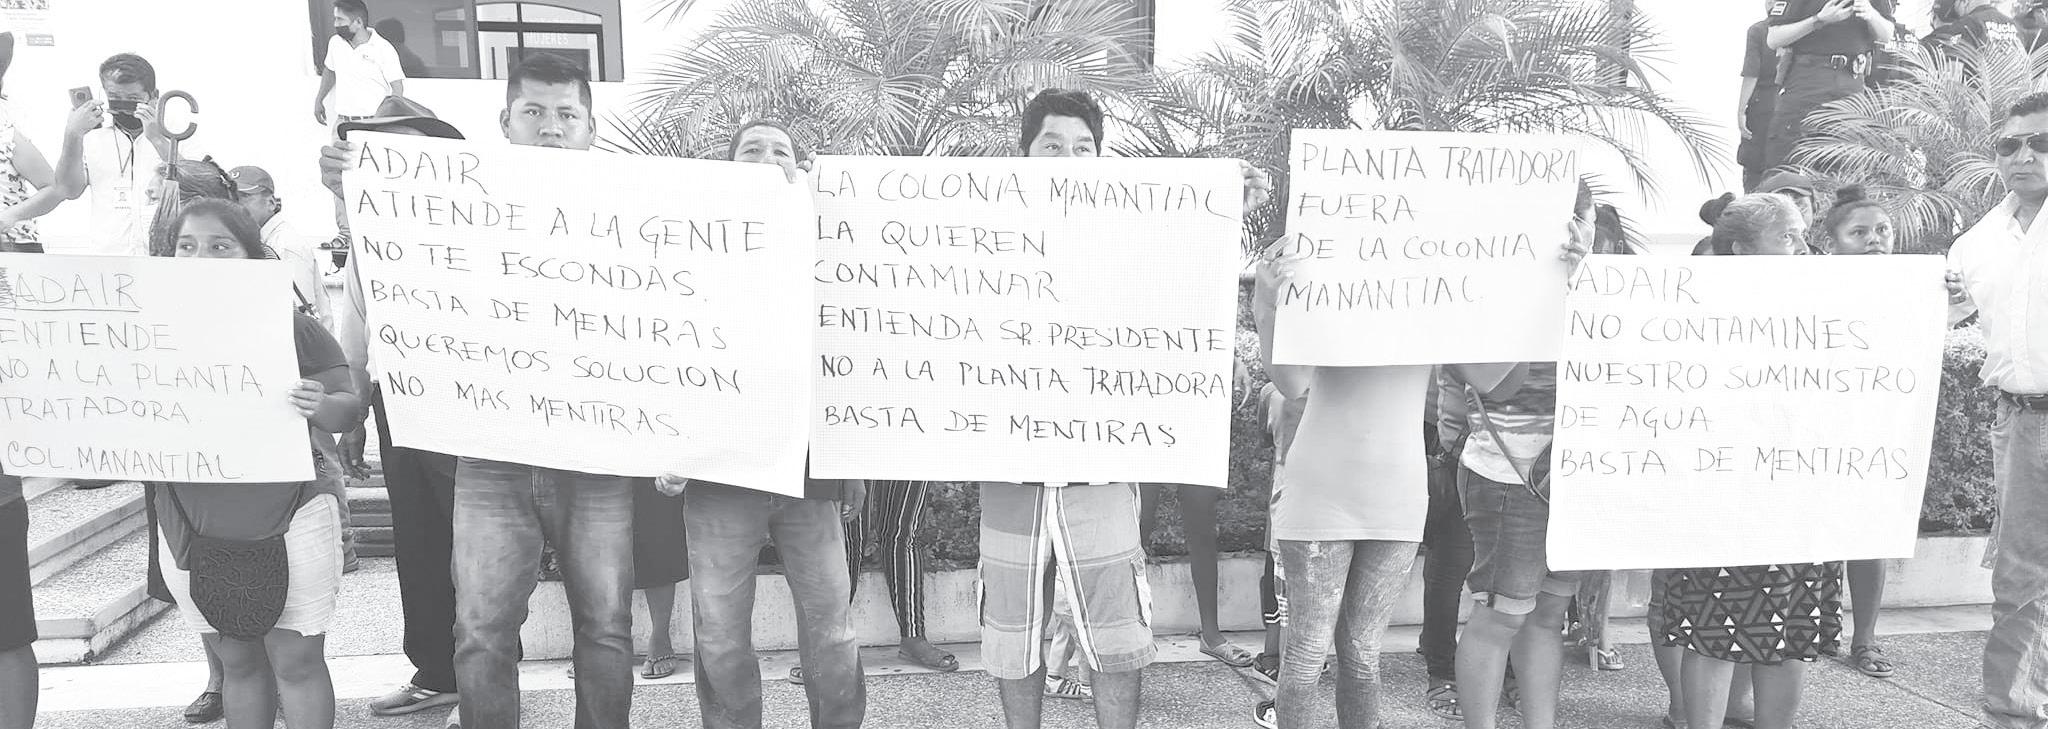 MUJERES
ADAIR
ENTIENDE
NO A LA PLANTA
TRATADORA.
COL. MANANTIAL.
ADAIR
ATIENDE A LA GENTE
NO TE ESCONDAS.
BASTA DE MENIRAS
QUEREMOS SOLUCION
NO MAS MENTIRAS.
LA COLONIA MANANTIAL
LA QUIEREN
CONTAMINAR.
ENTIENDA SR. PRESIDENTE
NO A LA PLANTA TRATADORA
BASTA DE MENTIRAS
PLANTA TRATADORA
FUERA
DE LA COLONIA
MANANTIAL.
ADAIR
NO CONTAMINES
NUESTRO SUMINISTRO
DE AGUA.
BASTA DE MENTIRAS